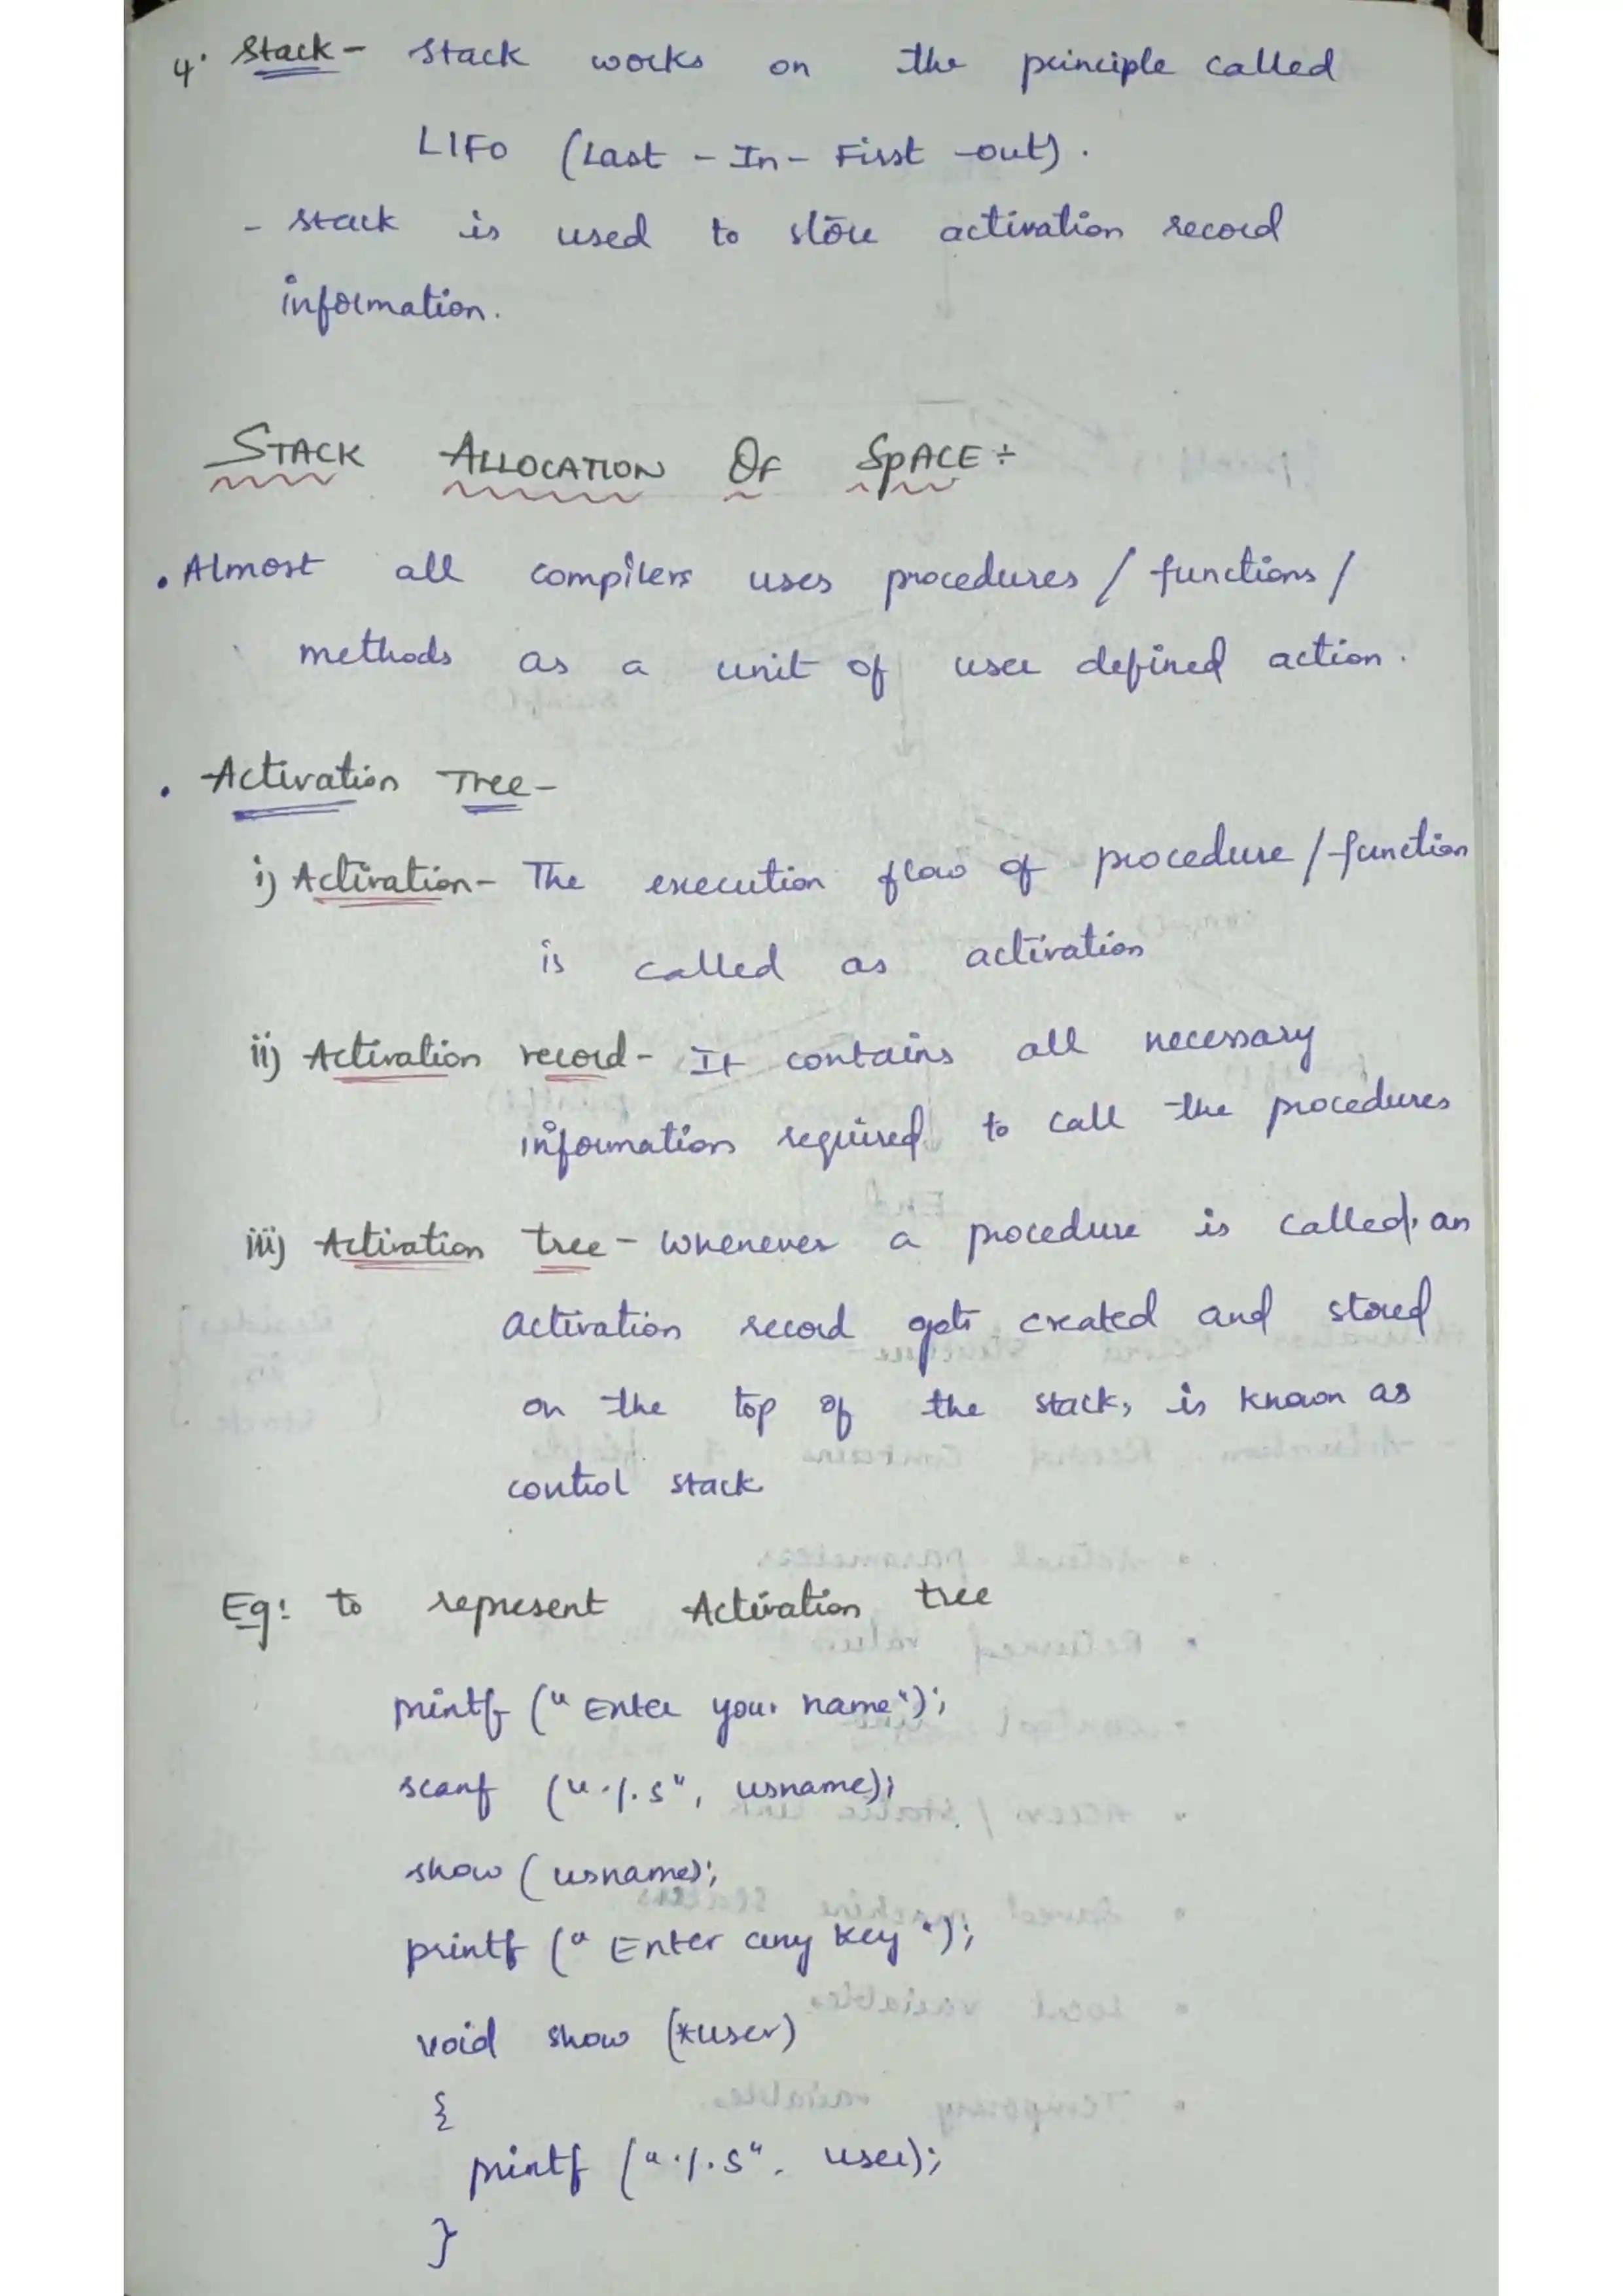 4. Stack - Stack works on the principle called
LIFO (Last - In - First - out).
- Stack is used to store activation record
information.
STACK ALLOCATION OF SPACE ÷
• Almost all compilers uses procedures / functions /
methods as a unit of user defined action.
• Activation Tree -
i) Activation - The execution flow of procedure / function
is called as activation
ii) Activation record - It contains all necessary
information required to call the procedures
iii) Activation tree - Whenever a procedure is called, an
activation record gets created and stored
on the top of the stack, is known as
control stack
Eg: to represent Activation tree
printf (" Enter your name");
scanf ("%s", usname);
show ( usname);
printf (" Enter any key ");
void show (*user)
{
printf ("%s", user);
}